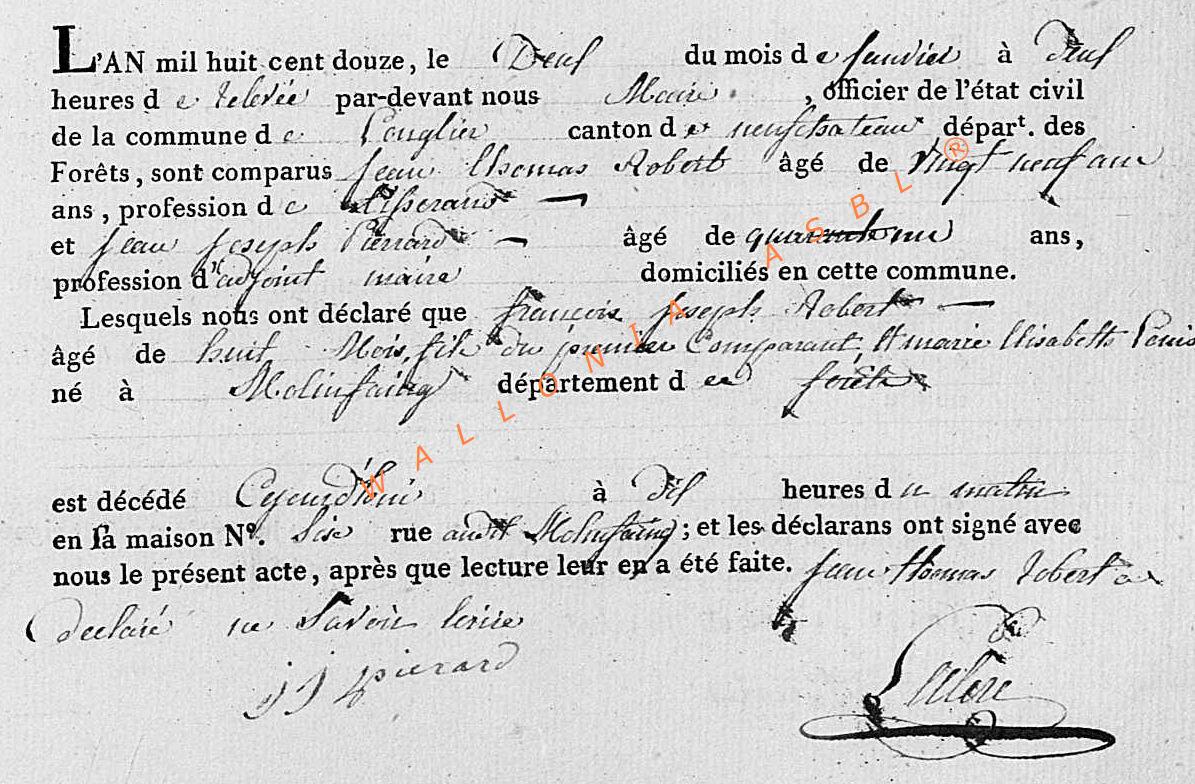 L'AN mil huit cent douze, le Deux du mois de Janvier à Deux
heures de relevée par-devant nous Maire, officier de l'état civil
de la commune de Longlier canton de neufchateau départ. des
Forêts, sont comparus Jean thomas Robert âgé de vingt neuf ans
ans, profession de tisserand
et Jean Joseph Pierrard âgé de quarante un ans,
profession d'adjoint maire domiciliés en cette commune.
Lesquels nous ont déclaré que françois Joseph Robert
âgé de huit Mois, fils du premier Comparant, et marie Elisabeth
né à Molinfaing département des forêts
est décédé Cejourd'hui à dix heures du matin
en sa maison Nº. Sise rue audit Molinfaing; et les déclarans ont signé avec
nous le présent acte, après que lecture leur en a été faite. Jean thomas Robert a
declaré ne Savoir Ecrire
J J pierard
WALLONIA ASBL ®